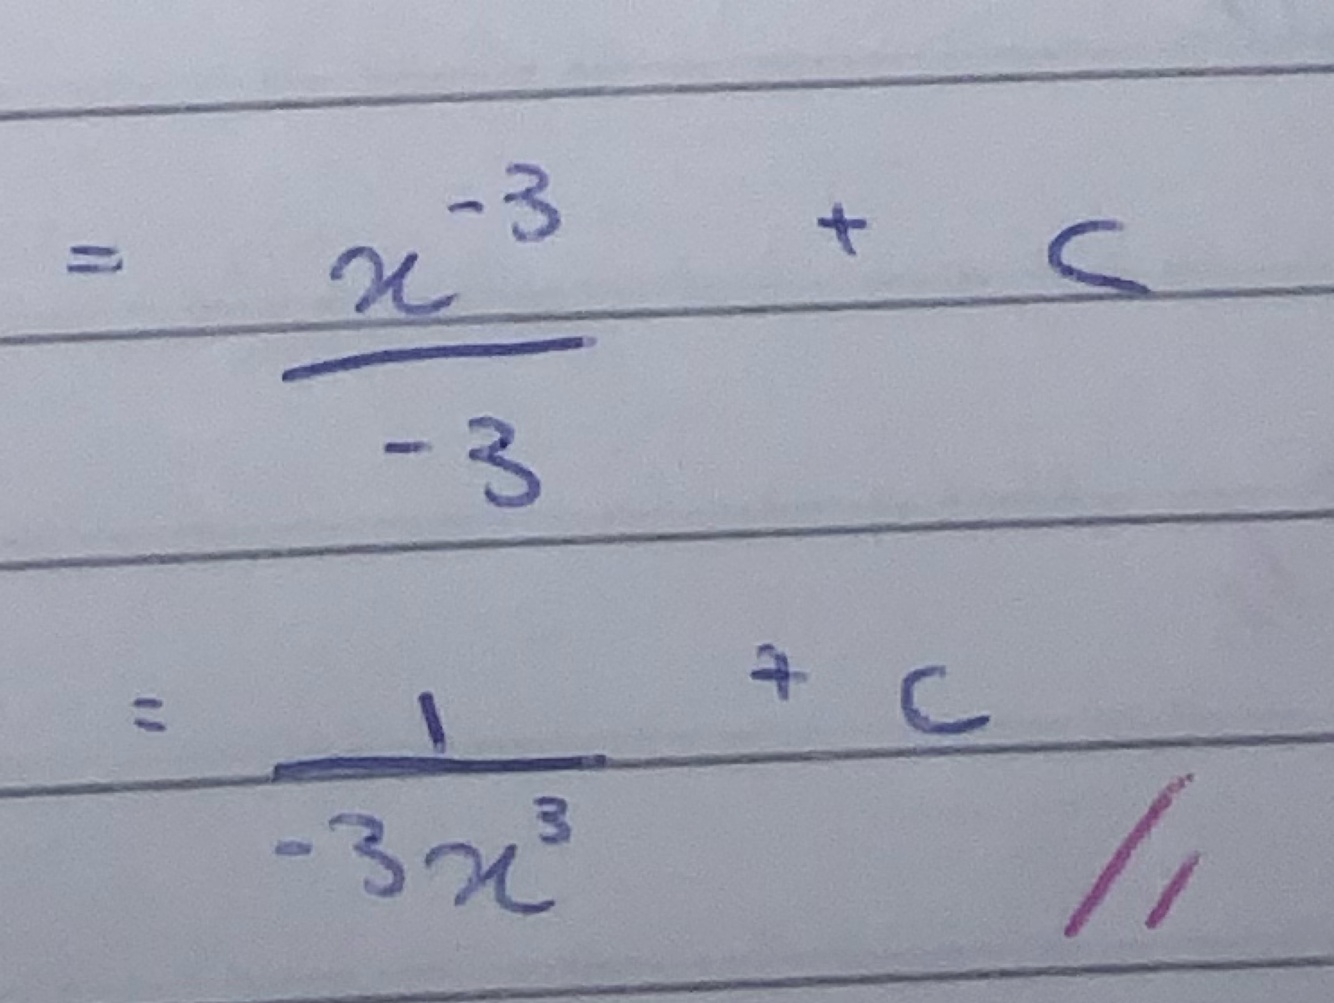 = x^-3 / -3 + c
= 1 / -3x^3 + c //